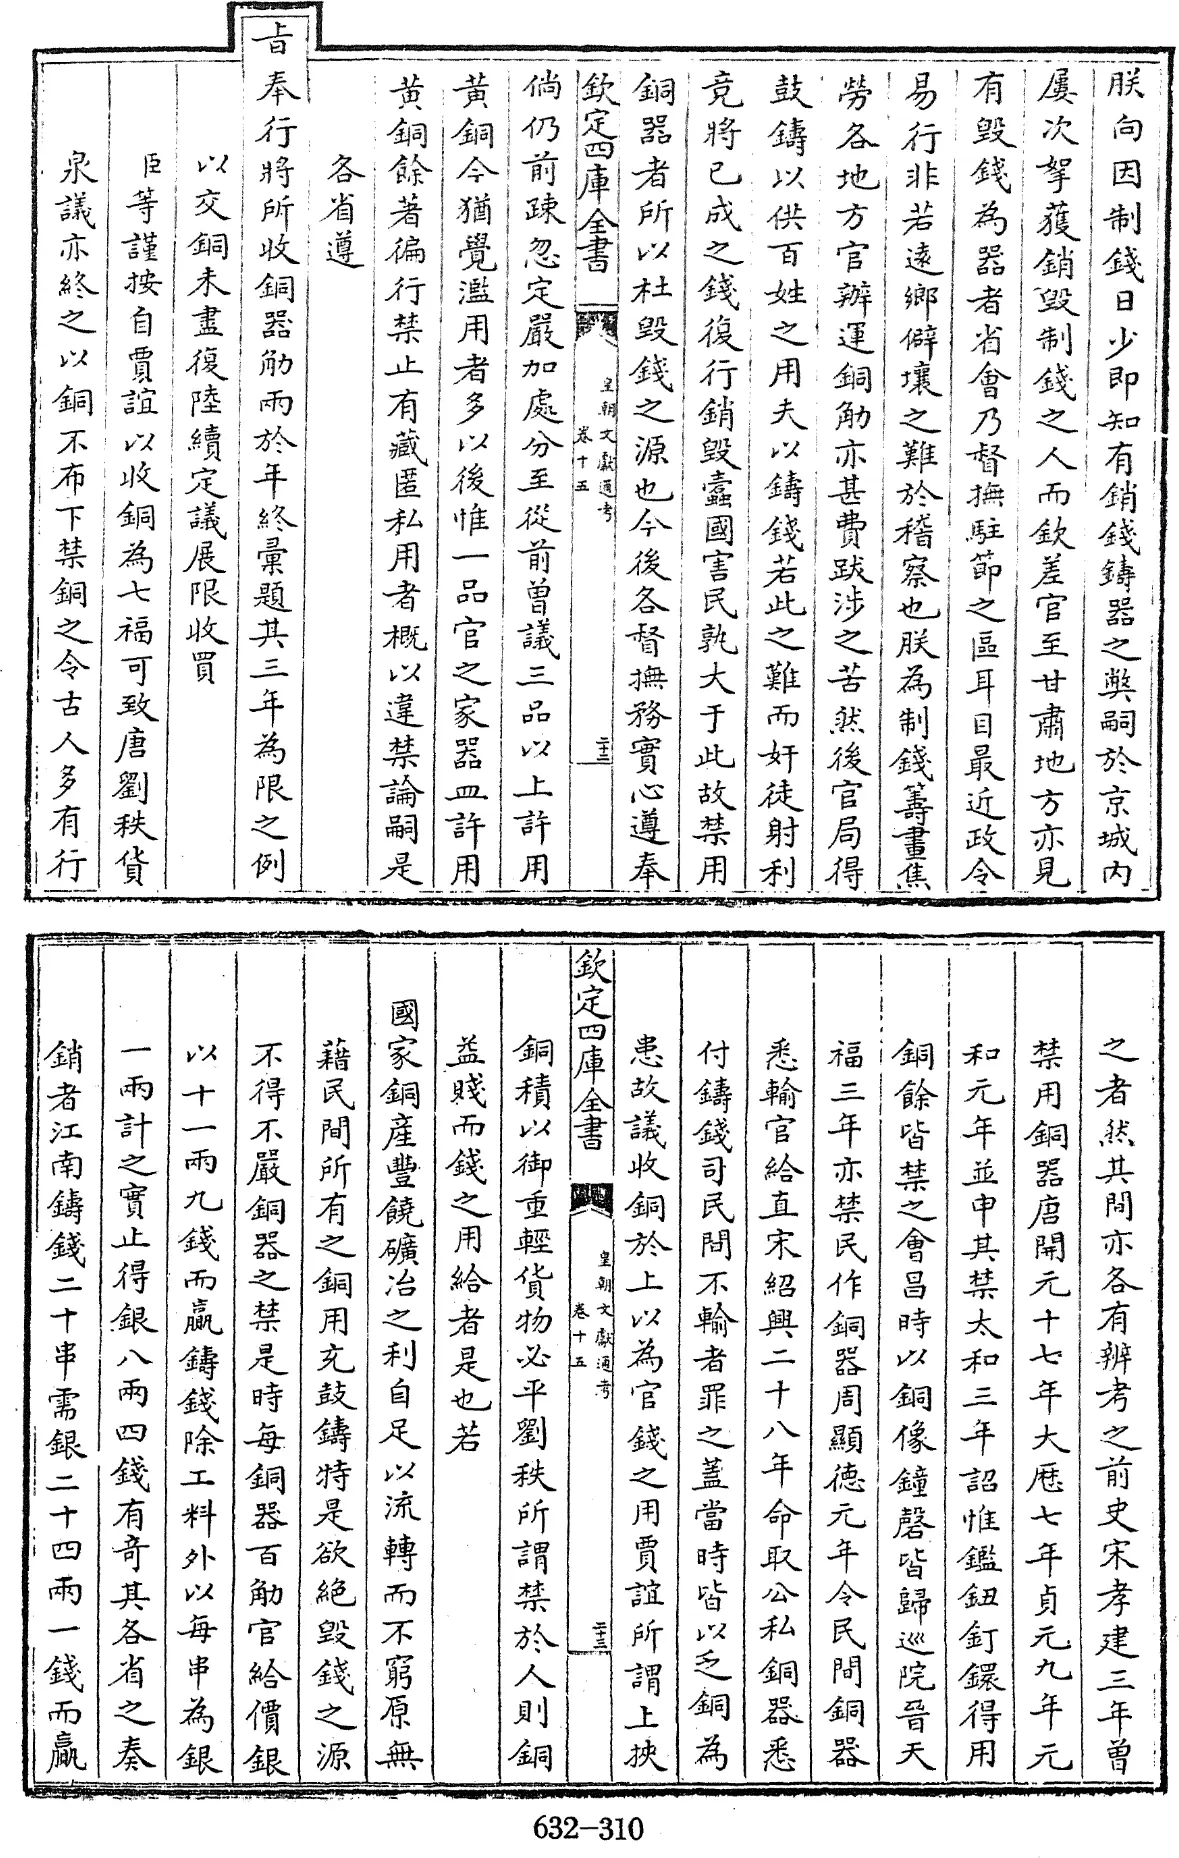 朕向因制錢日少即知有銷錢鑄器之弊嗣於京城内
屢次拏獲銷毀制錢之人而欽差官至甘肅地方亦見
有毀錢為器者省會乃督撫駐節之區耳目最近政令
易行非若遠鄉僻壤之難於稽察也朕為制錢籌畫焦
勞各地方官辦運銅觔亦甚費跋涉之苦然後官局得
鼓鑄以供百姓之用夫以鑄錢若此之難而奸徒射利
竟將已成之錢復行銷毀蠧國害民孰大于此故禁用
銅器者所以杜毀錢之源也今後各督撫務實心遵奉
欽定四庫全書
皇朝文獻通考
卷十五
二十三
倘仍前踈忽定嚴加處分至從前曾議三品以上許用
黄銅今猶覺濫用者多以後惟一品官之家器皿許用
黄銅餘著徧行禁止有藏匿私用者概以違禁論嗣是
各省遵
㫖奉行將所收銅器觔兩於年終彙題其三年為限之例
以交銅未盡復陸續定議展限收買
臣等謹按自賈誼以收銅為七福可致唐劉秩貨
泉議亦終之以銅不布下禁銅之令古人多有行
之者然其間亦各有辨考之前史宋孝建三年曾
禁用銅器唐開元十七年大厯七年貞元九年元
和元年並申其禁太和三年詔惟鑑鈕釘鐶得用
銅餘皆禁之會昌時以銅像鐘磬皆歸巡院晉天
福三年亦禁民作銅器周顯德元年令民間銅器
悉輸官給直宋紹興二十八年命取公私銅器悉
付鑄錢司民間不輸者罪之蓋當時皆以乏銅為
患故議收銅於上以為官錢之用賈誼所謂上挾
欽定四庫全書
皇朝文獻通考
卷十五
二十三
銅積以御重輕貨物必平劉秩所謂禁於人則銅
益賤而錢之用給者是也若
國家銅産豐饒礦冶之利自足以流轉而不窮原無
藉民間所有之銅用充鼓鑄特是欲絶毀錢之源
不得不嚴銅器之禁是時每銅器百觔官給價銀
以十一兩九錢而贏鑄錢除工料外以每串為銀
一兩計之實止得銀八兩四錢有奇其各省之奏
銷者江南鑄錢二十串需銀二十四兩一錢而贏
632-310